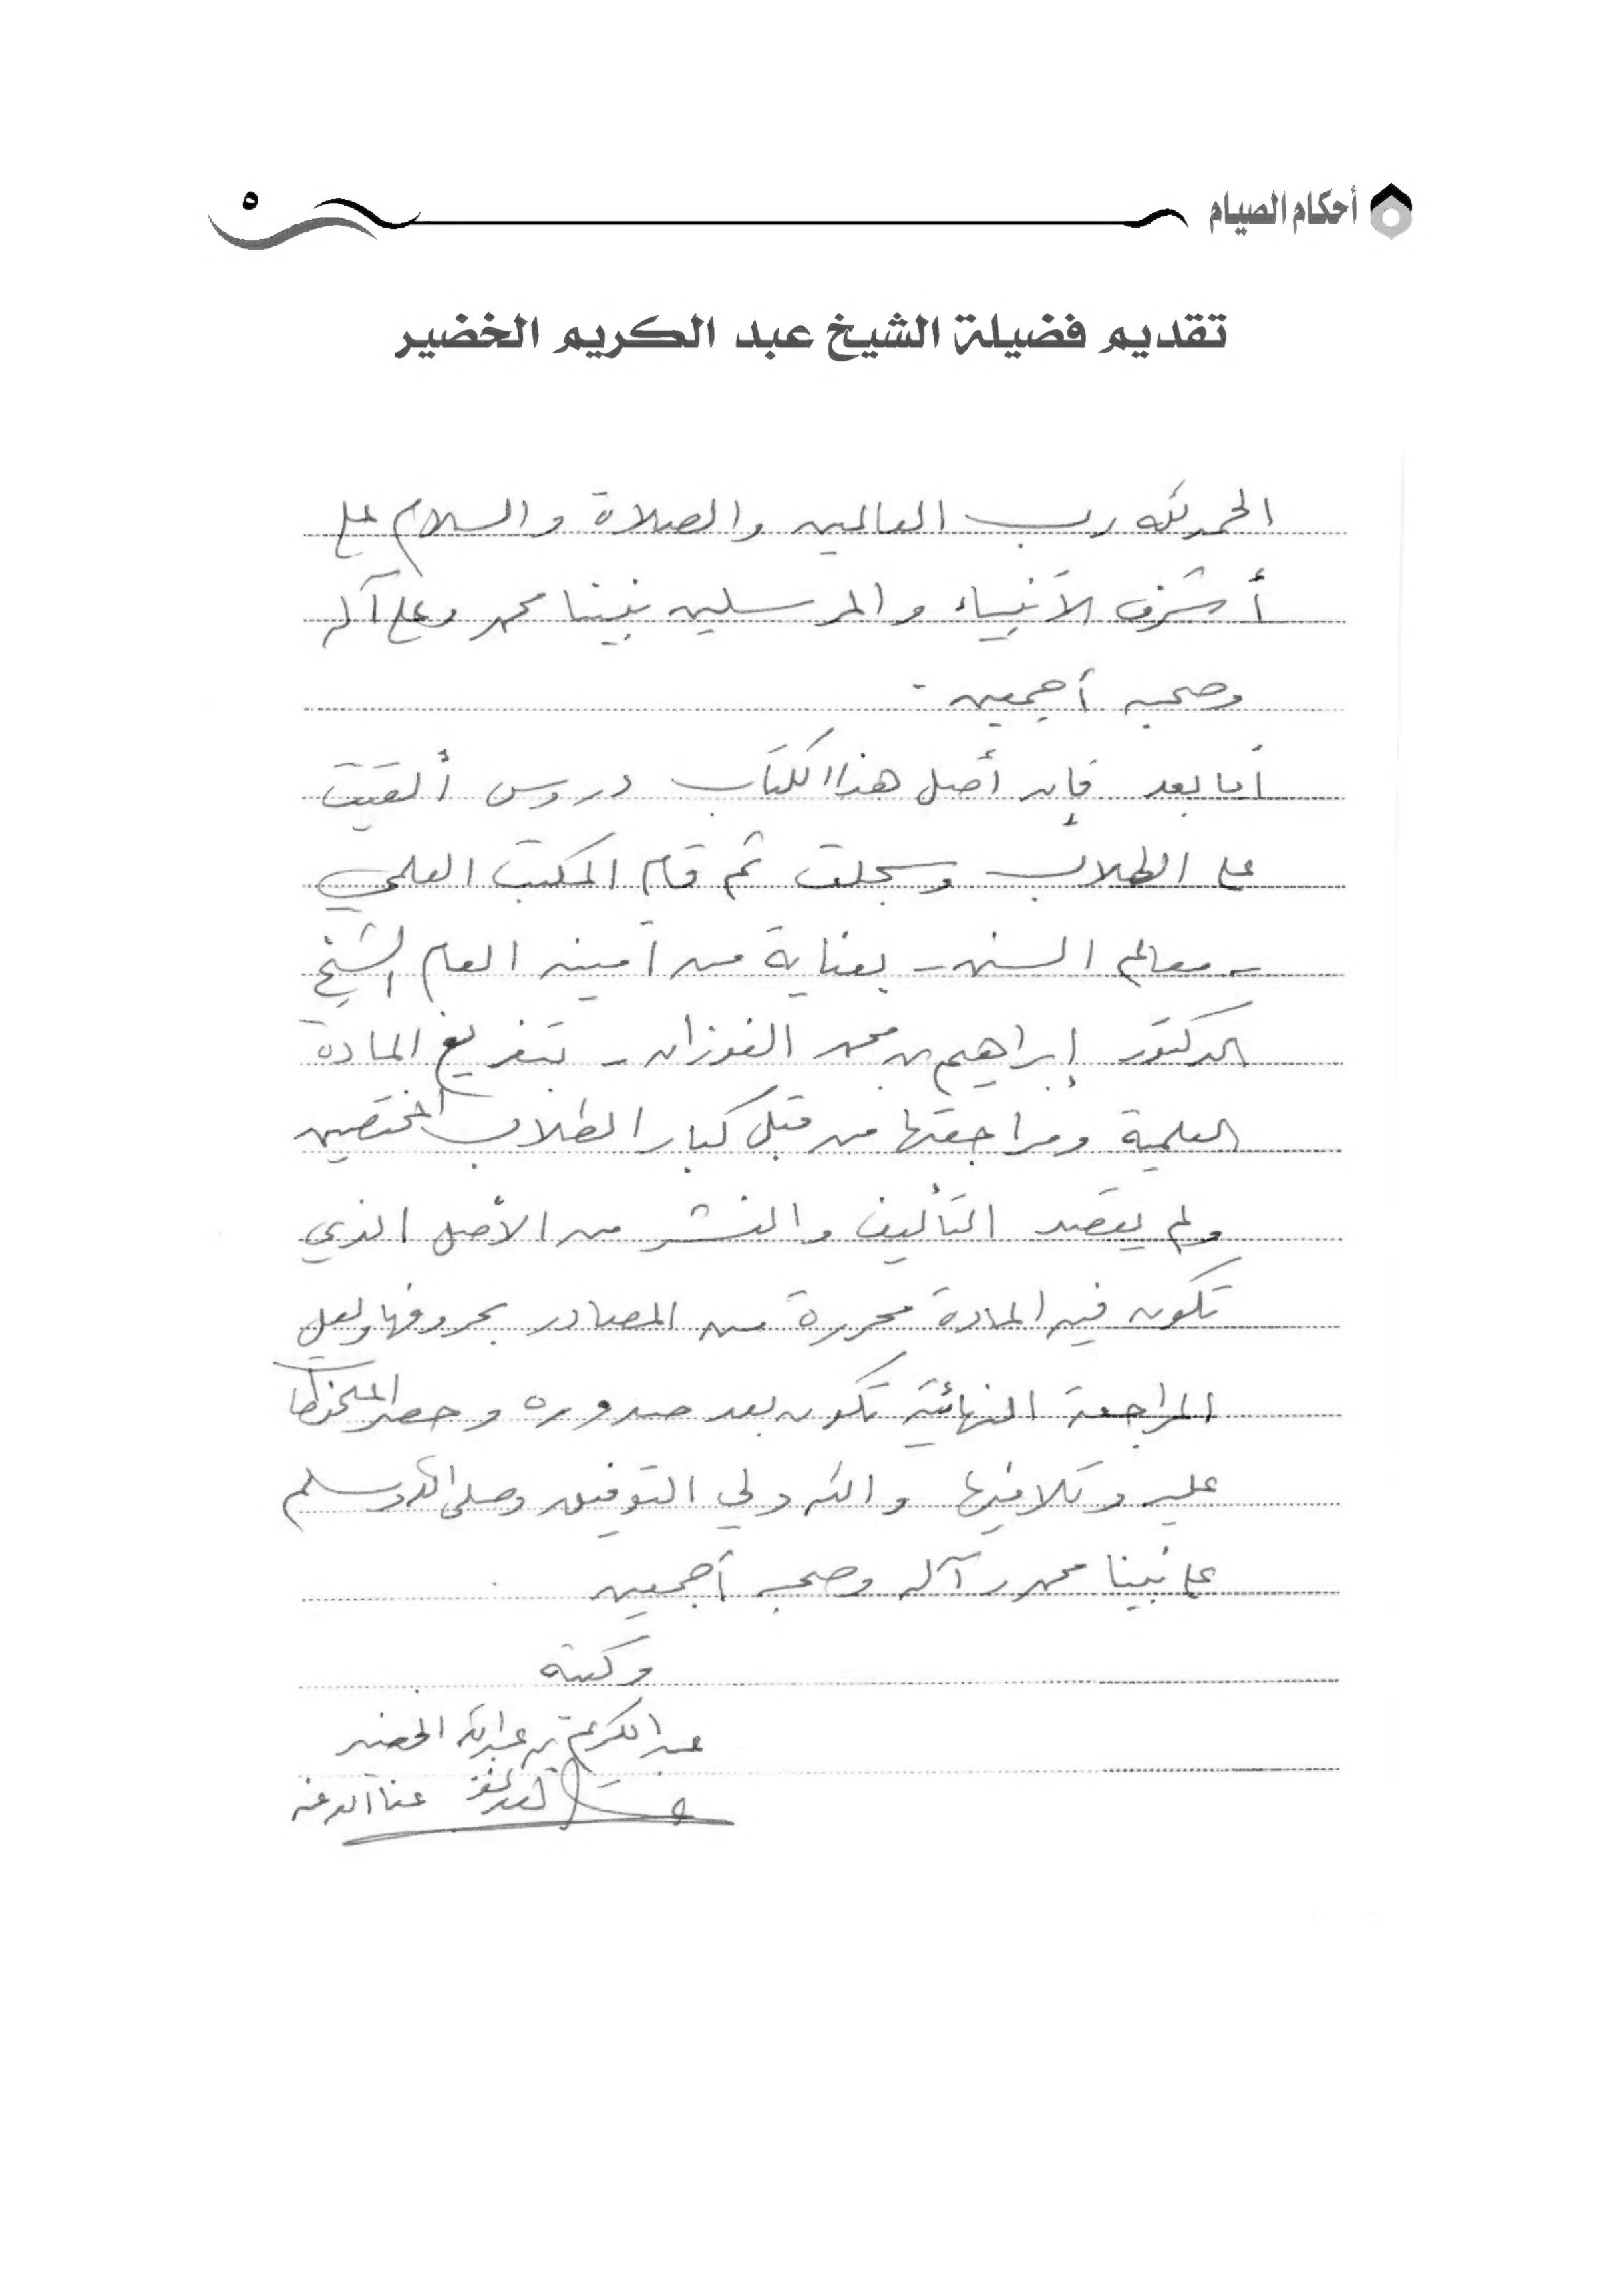 أحكام الصيام
٥
تقديم فضيلة الشيخ عبد الكريم الخضير
الحمد لله رب العالمين والصلاة والسلام على
أشرف الأنبياء والمرسلين نبينا محمد وعلى آله
وصحبه أجمعين .
أما بعد فإن أصل هذا الكتاب دروس ألقيت
على الطلاب وسجلت ثم قام المكتب العلمي
- معالم السنن - بعناية من أمينه العام الشيخ
الدكتور إبراهيم بن محمد الفوزان - بتفريغ المادة
العلمية ومراجعتها من قبل كبار الطلاب المختصين
ولم يقصد التأليف والنشر من الأصل الذي
تكون فيه المادة محررة من المصادر بحروفها ولعل
المراجعة النهائية تكون بعد صدوره وحصر الملحوظات
عليه وتلافيها والله ولي التوفيق وصلى الله وسلم
على نبينا محمد وآله وصحبه أجمعين .
وكتبه
عبد الكريم بن عبد الله الخضير
عفا الله عنه